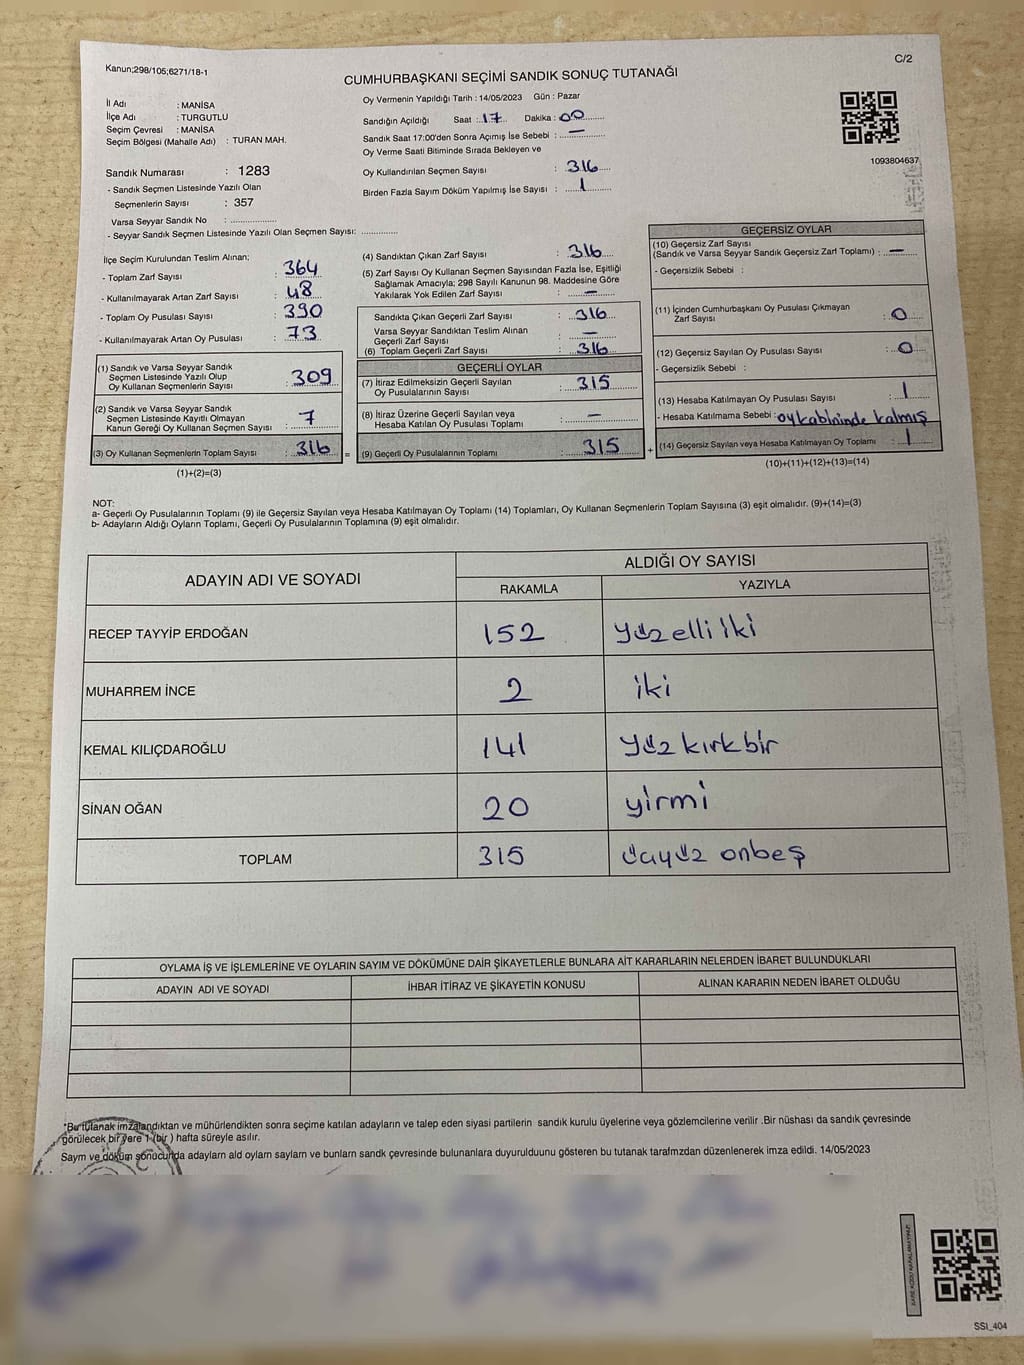 Kanun;298/105;6271/18-1
C/2
CUMHURBAŞKANI SEÇİMİ SANDIK SONUÇ TUTANAĞI
İl Adı : MANİSA
İlçe Adı : TURGUTLU
Seçim Çevresi : MANİSA
Seçim Bölgesi (Mahalle Adı) : TURAN MAH.
Oy Vermenin Yapıldığı Tarih : 14/05/2023 Gün : Pazar
Sandığın Açıldığı Saat : 17 Dakika : 00
Sandık Saat 17:00'den Sonra Açımış İse Sebebi : —
Oy Verme Saati Bitiminde Sırada Bekleyen ve
Oy Kullandırılan Seçmen Sayısı : 316
Birden Fazla Sayım Döküm Yapılmış İse Sayısı : 1
1093804637
Sandık Numarası : 1283
- Sandık Seçmen Listesinde Yazılı Olan
Seçmenlerin Sayısı : 357
Varsa Seyyar Sandık No : ....................
- Seyyar Sandık Seçmen Listesinde Yazılı Olan Seçmen Sayısı: ..............
İlçe Seçim Kurulundan Teslim Alınan;
- Toplam Zarf Sayısı : 364
- Kullanılmayarak Artan Zarf Sayısı : 48
- Toplam Oy Pusulası Sayısı : 390
- Kullanılmayarak Artan Oy Pusulası : 73
(1) Sandık ve Varsa Seyyar Sandık
Seçmen Listesinde Yazılı Olup
Oy Kullanan Seçmenlerin Sayısı : 309
(2) Sandık ve Varsa Seyyar Sandık
Seçmen Listesinde Kayıtlı Olmayan
Kanun Gereği Oy Kullanan Seçmen Sayısı : 7
(3) Oy Kullanan Seçmenlerin Toplam Sayısı : 316 =
(1)+(2)=(3)
(4) Sandıktan Çıkan Zarf Sayısı : 316
(5) Zarf Sayısı Oy Kullanan Seçmen Sayısından Fazla İse, Eşitliği
Sağlamak Amacıyla; 298 Sayılı Kanunun 98. Maddesine Göre
Yakılarak Yok Edilen Zarf Sayısı : —
Sandıkta Çıkan Geçerli Zarf Sayısı : 316
Varsa Seyyar Sandıktan Teslim Alınan
Geçerli Zarf Sayısı : —
(6) Toplam Geçerli Zarf Sayısı : 316
GEÇERLİ OYLAR
(7) İtiraz Edilmeksizin Geçerli Sayılan
Oy Pusulalarının Sayısı : 315
(8) İtiraz Üzerine Geçerli Sayılan veya
Hesaba Katılan Oy Pusulası Toplamı : —
(9) Geçerli Oy Pusulalarının Toplamı : 315 +
GEÇERSİZ OYLAR
(10) Geçersiz Zarf Sayısı
(Sandık ve Varsa Seyyar Sandık Geçersiz Zarf Toplamı) : —
- Geçersizlik Sebebi :
(11) İçinden Cumhurbaşkanı Oy Pusulası Çıkmayan
Zarf Sayısı : 0
(12) Geçersiz Sayılan Oy Pusulası Sayısı : 0
- Geçersizlik Sebebi :
(13) Hesaba Katılmayan Oy Pusulası Sayısı : 1
- Hesaba Katılmama Sebebi : oy kabininde kalmış
(14) Geçersiz Sayılan veya Hesaba Katılmayan Oy Toplamı : 1
(10)+(11)+(12)+(13)=(14)
NOT:
a- Geçerli Oy Pusulalarının Toplamı (9) ile Geçersiz Sayılan veya Hesaba Katılmayan Oy Toplamı (14) Toplamları, Oy Kullanan Seçmenlerin Toplam Sayısına (3) eşit olmalıdır. (9)+(14)=(3)
b- Adayların Aldığı Oyların Toplamı, Geçerli Oy Pusulalarının Toplamına (9) eşit olmalıdır.
ADAYIN ADI VE SOYADI
ALDIĞI OY SAYISI
RAKAMLA YAZIYLA
RECEP TAYYİP ERDOĞAN 152 yüz elli iki
MUHARREM İNCE 2 iki
KEMAL KILIÇDAROĞLU 141 yüz kırk bir
SİNAN OĞAN 20 yirmi
TOPLAM 315 üçyüz onbeş
OYLAMA İŞ VE İŞLEMLERİNE VE OYLARIN SAYIM VE DÖKÜMÜNE DAİR ŞİKAYETLERLE BUNLARA AİT KARARLARIN NELERDEN İBARET BULUNDUKLARI
ADAYIN ADI VE SOYADI İHBAR İTİRAZ VE ŞİKAYETİN KONUSU ALINAN KARARIN NEDEN İBARET OLDUĞU
*Bu tutanak imzalandıktan ve mühürlendikten sonra seçime katılan adayların ve talep eden siyasi partilerin sandık kurulu üyelerine veya gözlemcilerine verilir .Bir nüshası da sandık çevresinde
görülecek bir yere 1 (bir ) hafta süreyle asılır.
Saym ve döküm sonucunda adaylarn ald oylarn saylarn ve bunlarn sandk çevresinde bulunanlara duyurulduunu gösteren bu tutanak tarafmzdan düzenlenerek imza edildi. 14/05/2023
KARE KODU KARALAMAYINIZ!
SSI_404